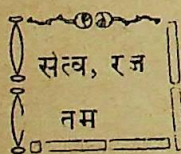 सत्व, रज
तम